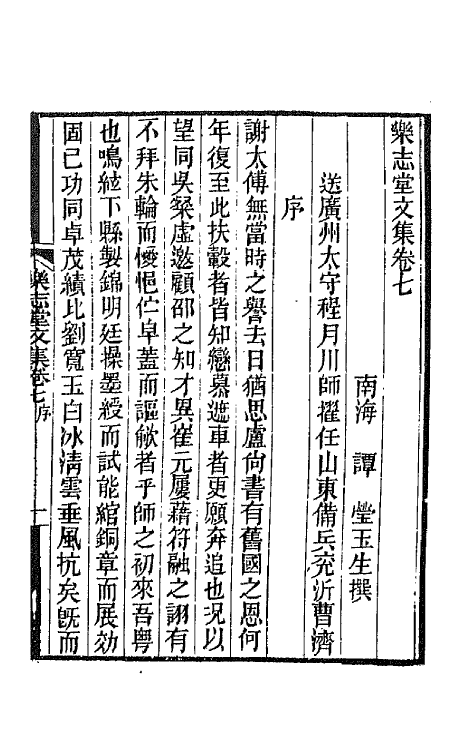 樂志堂文集卷七
南海　譚　瑩玉生撰
送廣州太守程月川師擢任山東備兵兗沂曹濟
序
謝太傅無當時之譽去日猶思盧尙書有舊國之恩何
年復至此扶轂者皆知戀慕遮車者更願奔追也况以
望同吳粲虛邀顧邵之知才異崔元屢藉符融之詡有
不拜朱輪而悽悒伫皁蓋而謳歈者乎師之初來吾粤
也鳴絃下縣製錦明廷操墨綬而試能綰銅章而展効
固已功同卓茂績比劉寬玉白冰淸雲垂風抗矣旣而
樂志堂文集卷七　序
一